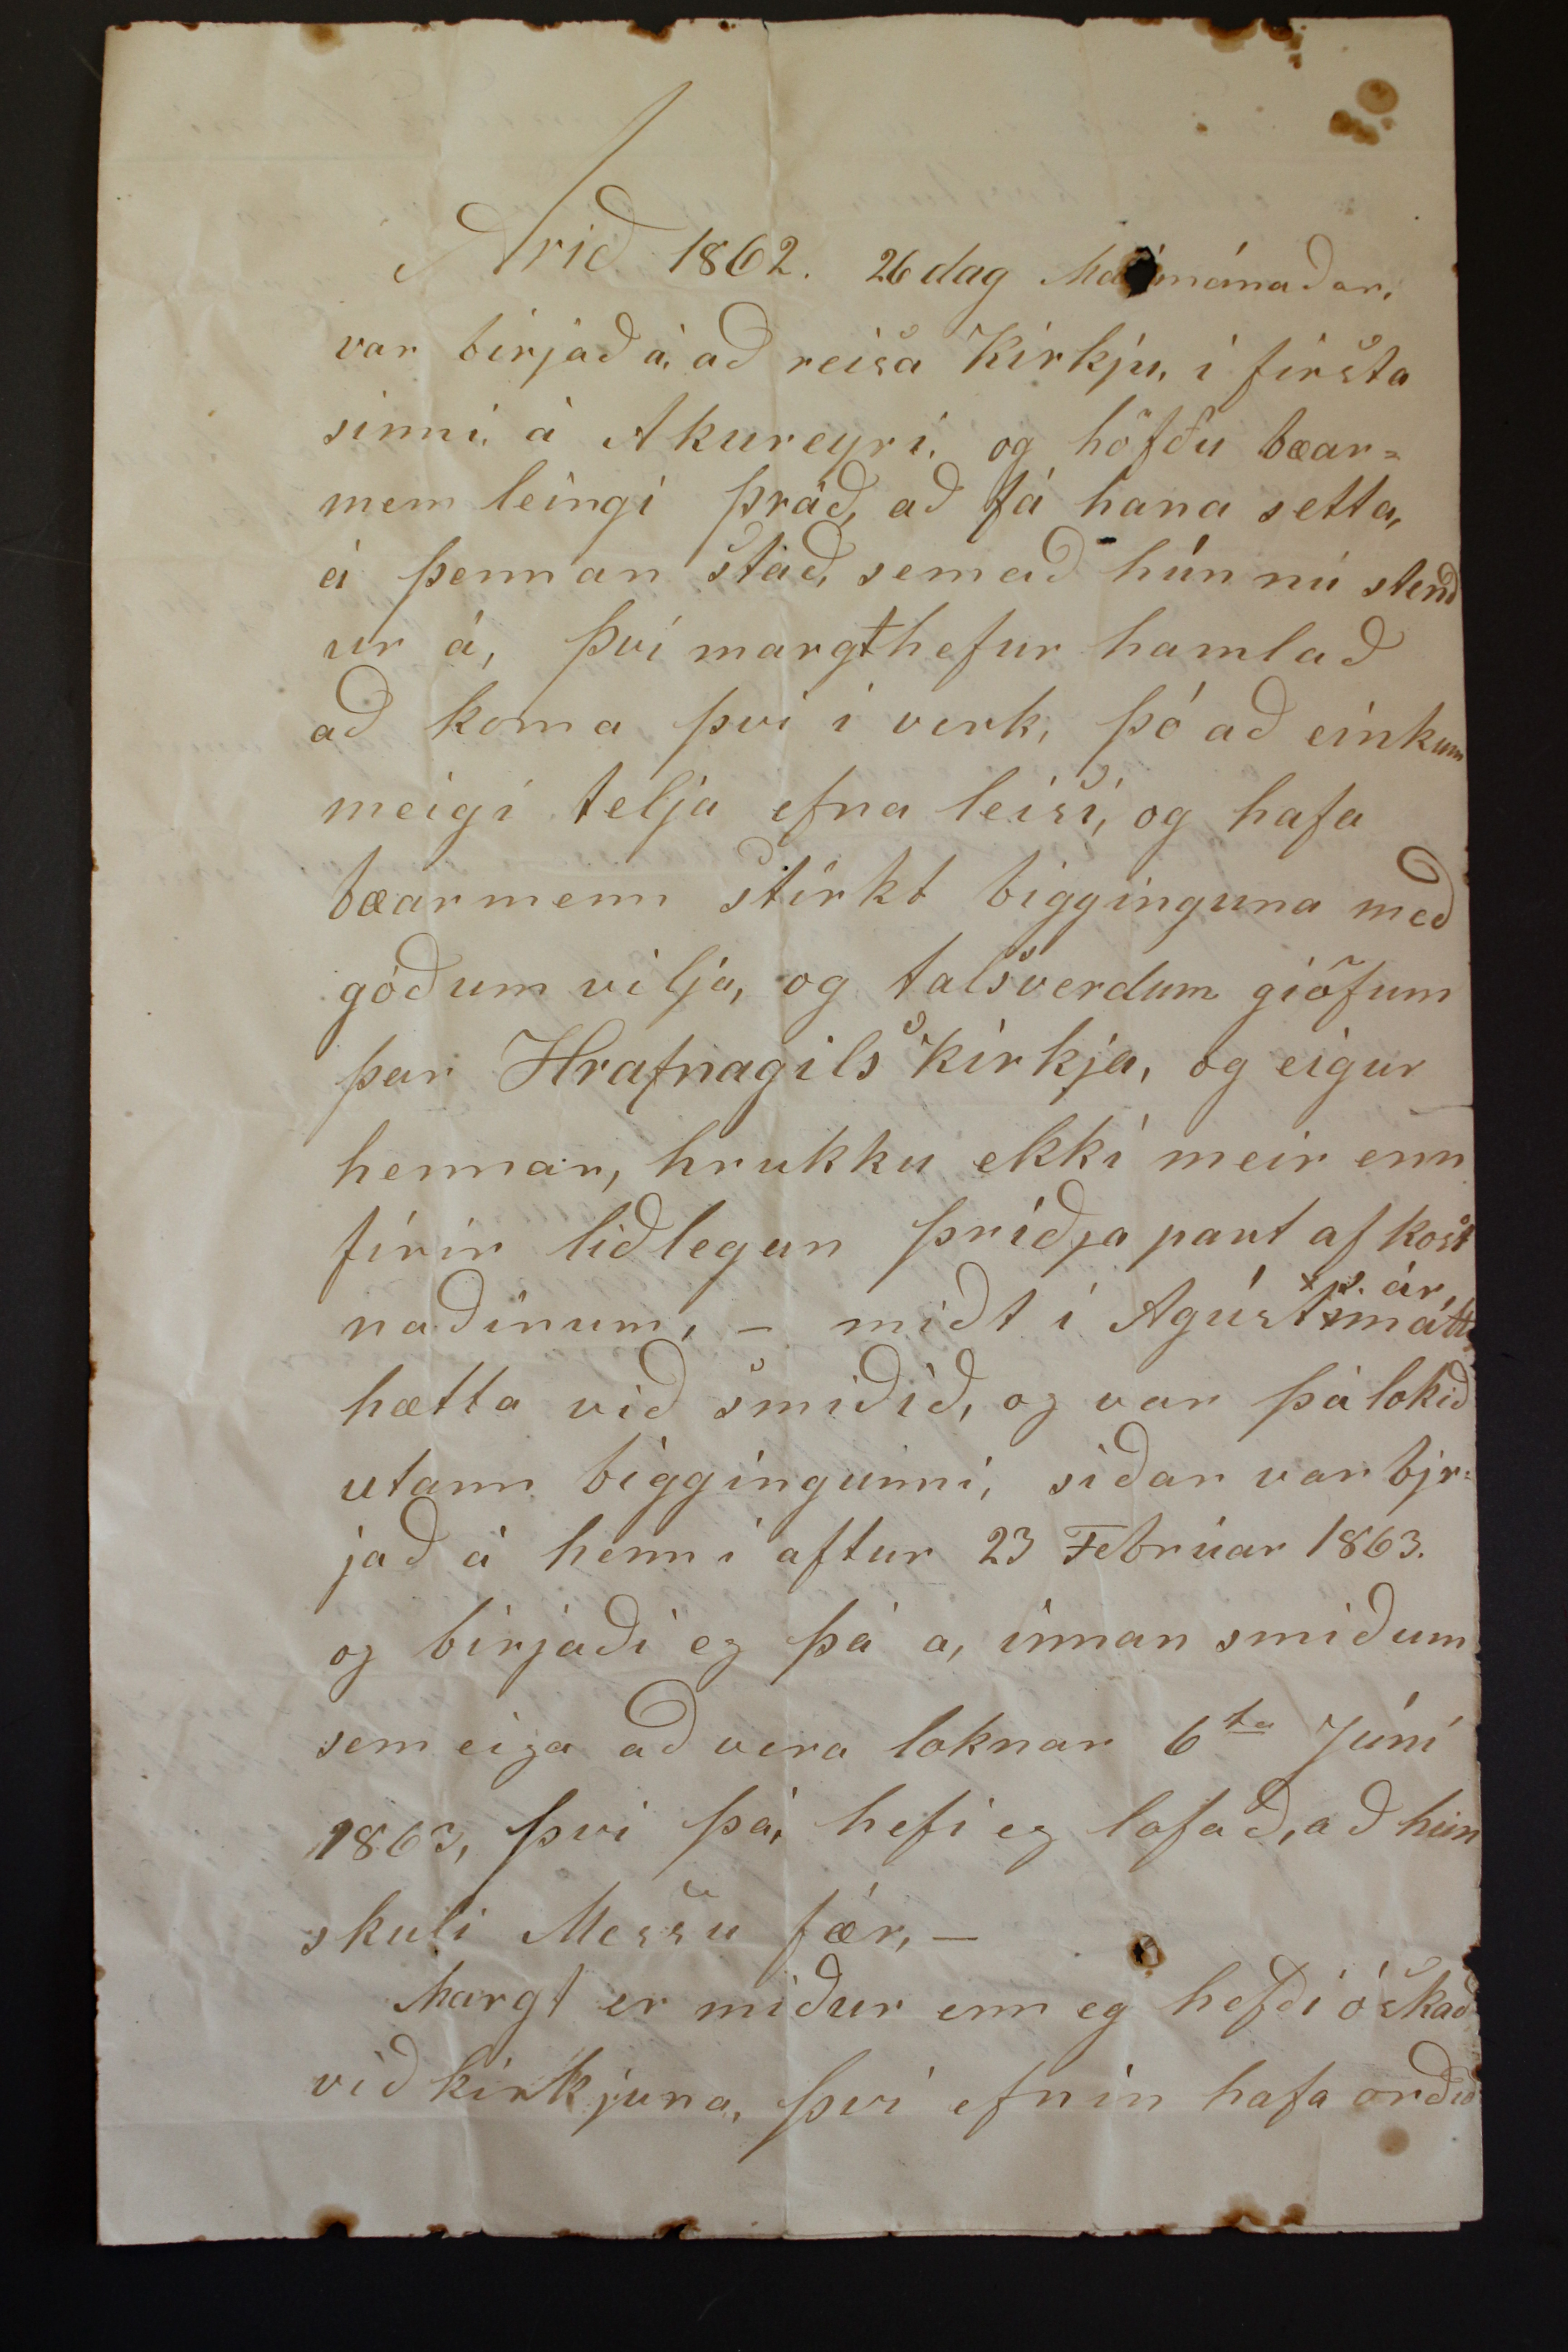 Arið 1862. 26 dag Maímánaðar,
var birjað á, að reisa Kirkju, i firsta
sinni, á Akureyri, og höfðu bæar=
menn leingi þráð, að fá hana setta,
á þennan stað, sem að hún nú stend
ur á, því margt hefur hamlað
að koma því i verk, þó að einkum
meigi telja efna leisi, og hafa
bæarmenn stirkt bigginguna með
góðum vilja, og talsverdum giöfum
þar Hrafnagils Kirkja, og eigur
hennar, hrukku ekki meir enn
firir liðlegan þriðja part af kost
naðinum, – miðt i Agúst × s. ár, mátti
hætta við smiðið, og var þá lokið
utann biggingunni, siðar var bjr=
jað á henni aftur 23 Februar 1863.
og birjaði eg þá a, innan smiðum
sem eiga að vera loknar 6ta Júní
1863, því þá, hefi eg lofað, að hún
skuli Messu fær, –
Margt er miður enn eg hefði óskað
við kirkjuna, því efnin hafa orðið